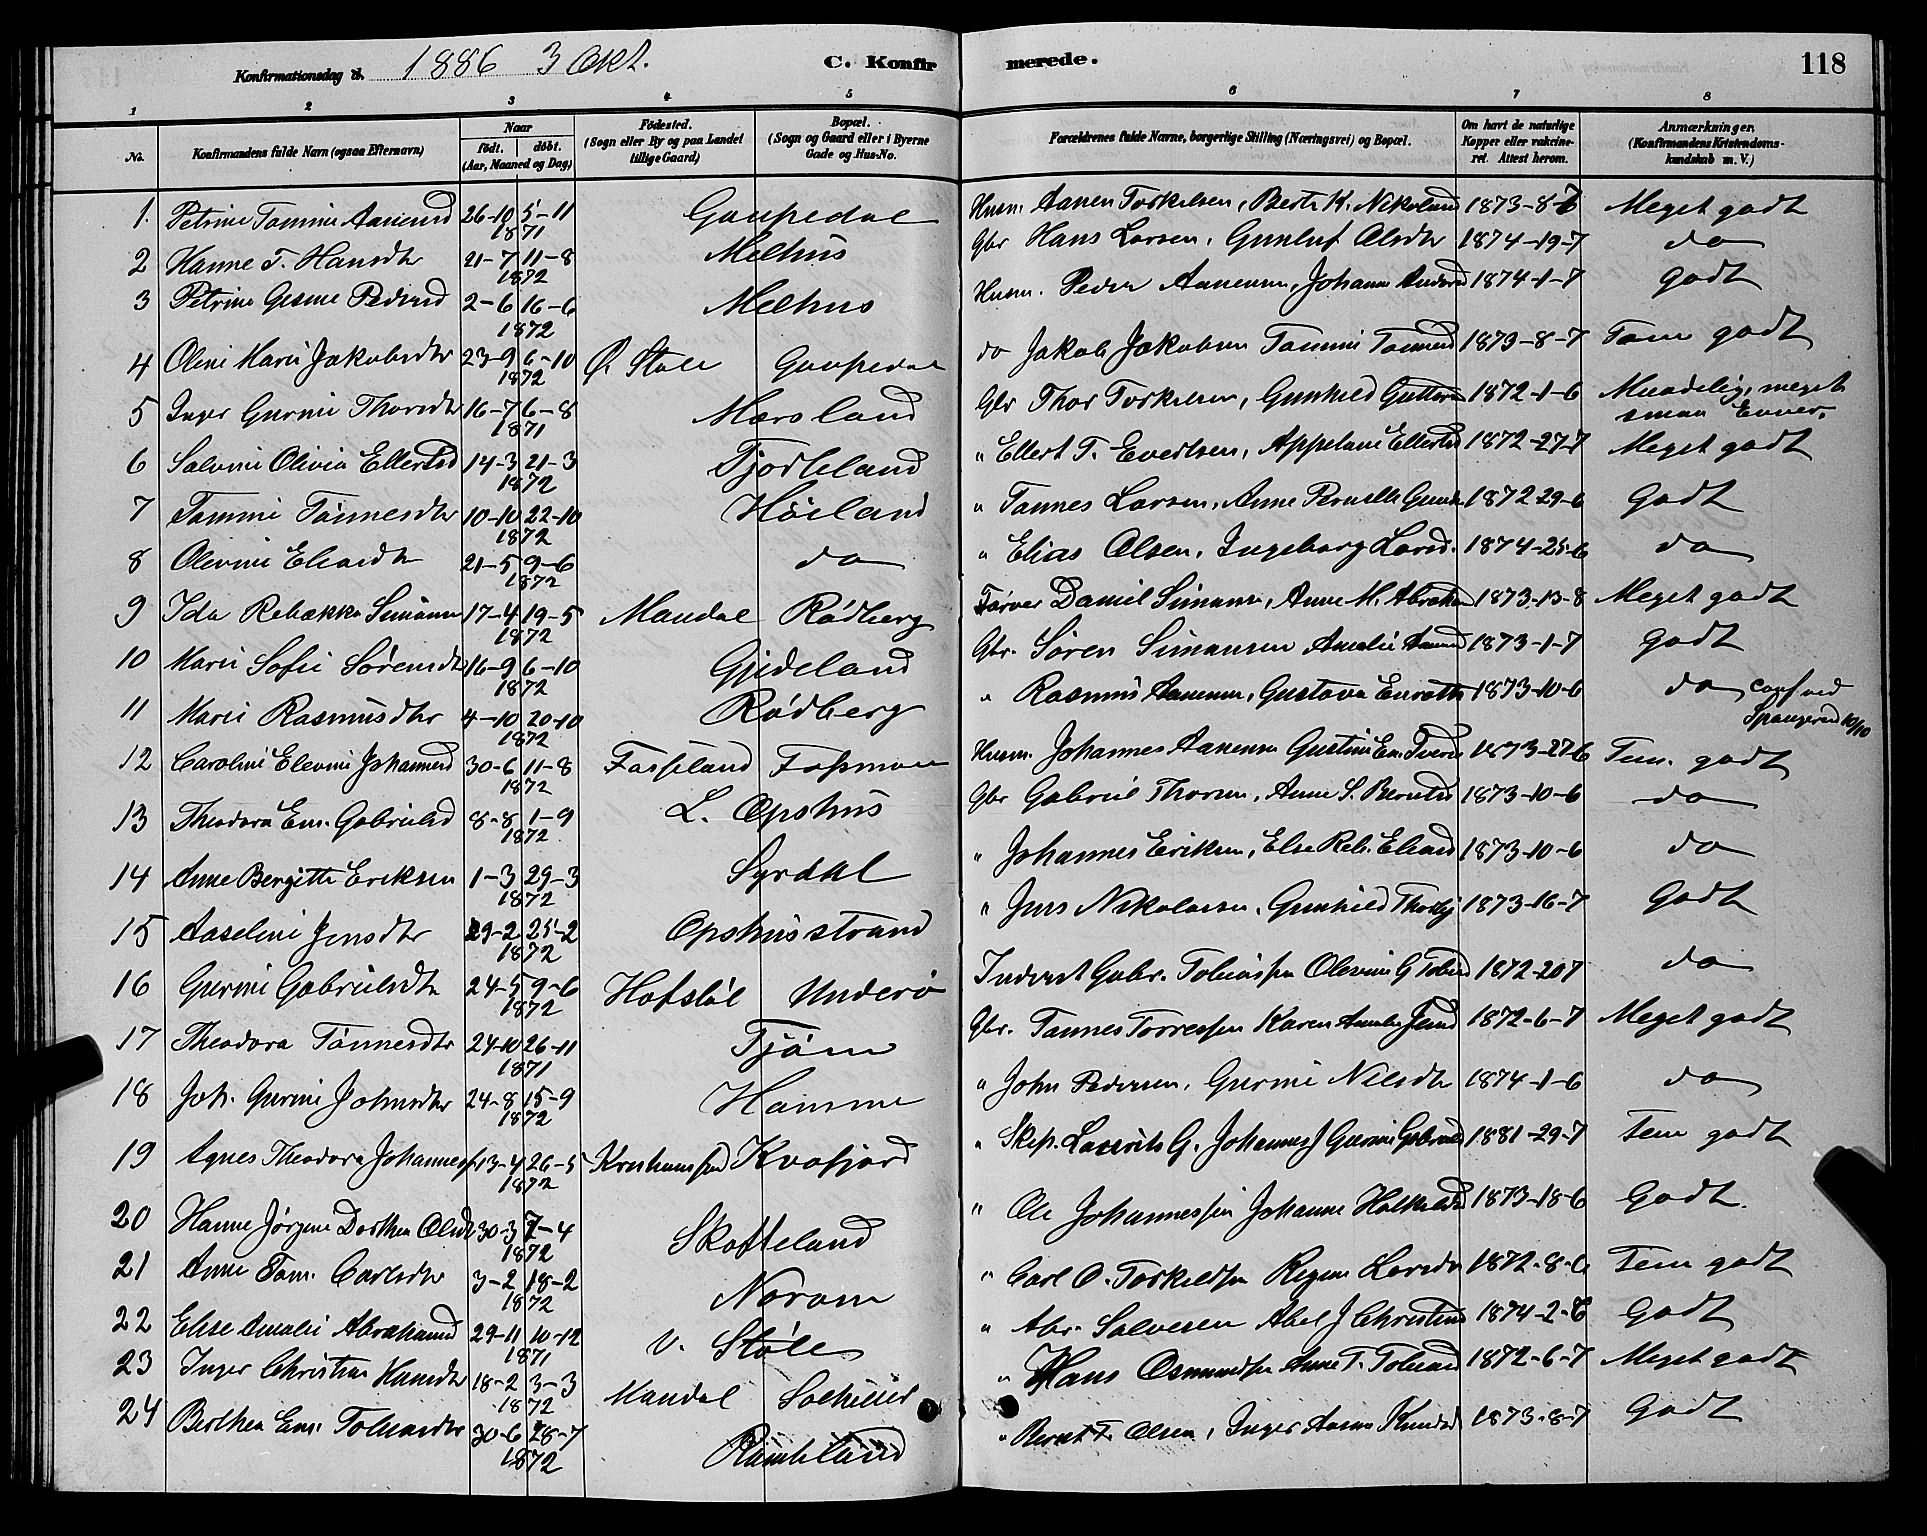 Konfirmationsdag d. 1886 3 Okt. C. Konfirmerede. 118
1 2 3 4 5 6 7 8
No. Konfirmandens fulde Navn (ogsaa Efternavn) Naar født. døbt. (Aar, Maaned og Dag) Fødested. (Sogn eller By og paa Landet tillige Gaard) Bopæl. (Sogn og Gaard eller i Byerne Gade og Hus-No. Forældrenes fulde Navne, borgerlige Stilling (Næringsvei) og Bopæl. Om havt de naturlige Kopper eller vakcineret. Attest herom. Anmærkninger. (Konfirmandens Kristendomskundskab m. V.)
1. Petrine Tomine Aanensd 26-10 5-11 1871 Gaupedal Husm. Aanen Torkelsen, Berte K. Nikolausd 1873-8-7 Meget godt
2 Hanne T. Hansdtr 21-7 11-8 1872 Melhus Gbr Hans Larsen, Gunluf Olsdtr 1874-19-7 do
3 Petrine Gesine Pedersd 2-6 16-6 1872 Melhus Husm. Peder Aanensen, Johanne Andersd 1874-1-7 godt
4 Oline Marie Jakobsdtr 23-9 6-10 1872 Ø. Støle Gaupedal do Jakob Jakobsen Tomine Tønnesd 1873-8-7 Tem godt
5 Inger Gurine Thorsdtr 16-7 6-8 1871 Marsland Gbr Thor Torkelsen, Gunhild 1872-1-6 Maadelig, meget smaa Evner.
6 Salvine Olivia Ellertsd 14-3 21-3 1872 Tjorteland " Ellert T. Evertsen, Appelone Ellertsd 1872-27-7 Meget godt
7 Tomine Tönnesdtr 10-10 22-10 1872 Höiland " Tønnes Larsen, Anne Pernille 1872-29-6 Godt
8 Olevine Eliasdtr 21-5 9-6 1872 do " Elias Olsen, Ingeborg Larsd. 1874-25-6 do
9 Ida Rebækka Simonsen 17-4 19-5 1872 Mandal Rödberg Farver Daniel Simonsen, Anne M. Abraham 1873-13-8 Meget godt
10 Marie Sofie Sørensdtr 16-9 6-10 1872 Gjideland Gbr. Sören Simonsen Amalie Aanensd 1873-1-7 godt
11 Marie Rasmusdtr 4-10 20-10 1872 Rødberg " Rasmus Aanensen, Gustava 1873-10-6 do conf ved Spangereid 10/10
12 Caroline Elevine Johannesd 30-6 11-8 1872 Fasseland Fosmoen Husm. Johannes Aanensen Gustine Em. 1873-27-6 Tem. godt
13 Theodora Em. Gabrielsd 8-8 1-9 1872 L. Opshus Gbr Gabriel Thorsen, Anne S. Berntsd 1873-10-6 do
14 Anne Bergitte Eriksen 1-3 29-3 1872 Syrdal " Johannes Eriksen, Else Reb. Eliasd 1873-10-6 do
15 Aaseline Jensdtr 29-2 25-2 1872 Opshusstrand " Jens Nikolaisen, Gunhild 1873-16-7 Godt
16 Gurine Gabrielsdtr 24-5 9-6 1872 Hofstöl Underö Inderst Gabr. Tobiassen Olevine G Tobiasd 1872-20 7 do
17 Theodora Tönnesdtr 24-10 26-11 1871 Tjöm Gbr. Tønnes Torressen Karen Amalie Jensd 1872-6-7 Meget godt
18 Joh. Gurine Johnsdtr 24-8 15-9 1872 Hamme " John Pedersen, Gurine Nilsdtr 1874-1-6 do
19 Agnes Theodora Johannes 13-4 26-5 1872 Kristianssand Kvafjord " Skip. Laurits G. Johannes J Gurine Gabriels 1881-29-7 Tem godt
20 Hanne Jørgine Dorthea Olsdtr 30-3 7-4 1872 Skofteland " Ole Johannessen Johanne 1873-18-6 Godt.
21 Anne Tom. Carlsdtr 3-2 18-2 1872 Norom " Carl O. Torkildsen Regine Larsdtr 1872-8-6 Tem godt
22 Elise Amalie Abrahamsd 29-11 10-12 1871 V. Støle " Abr. Salvesen Abel J Christens 1874-2-8 Godt
23 Inger Christine Hansdtr 18-2 3-3 1872 Mandal " Hans Osmundsen Anne T. Tobiasd 1872-6-7 Meget godt
24 Berthea Em. Tobiasdtr 30-6 28-7 1872 " Bernt T. Olsen, Inger Knudsd 1873-8-7 Godt